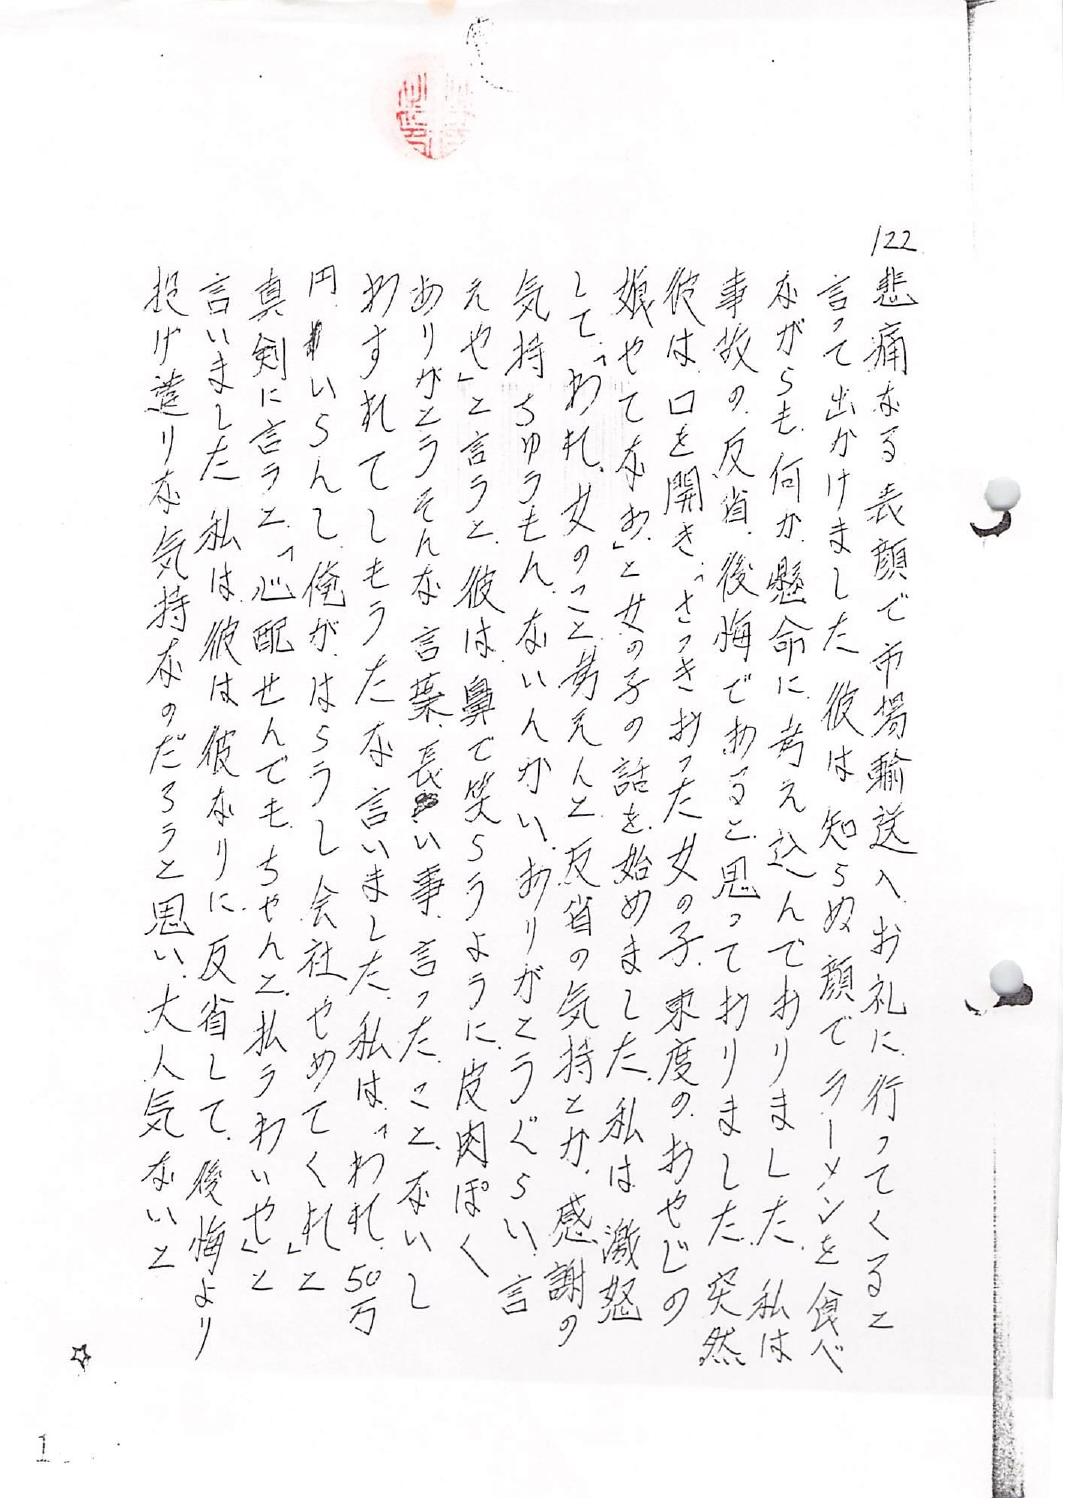 122
悲痛なる表顔で市場輸送へお礼に行ってくると
言って出かけました彼は知らぬ顔でラーメンを食べ
ながらも何か懸命に考え込んでありました、私は
事故の反省、後悔であると思っておりました、突然
彼は口を開き、「さっきおった女の子、東度のおやじの
娘やてなお」と女の子の話を始めました、私は激怒
して、「われ、女のこと考えんと反省の気持とか、感謝の
気持ちゅうもん、ないんかい、ありがとうぐらい、言
えや」と言うと、彼は鼻で笑らうように、皮肉ぽく
ありがとうそんな言葉、長い事、言ったこと、ないし
わすれてしもうたな言いました、私は、「われ、50万
円いらんし、俺が、はらうし会社やめてくれ」と
真剣に言うと、「心配せんでも、ちゃんと、払うわいや」と
言いました私は、彼は彼なりに、反省して、後悔より
投げ造りな気持なのだろうと思い、大人気ないと
1